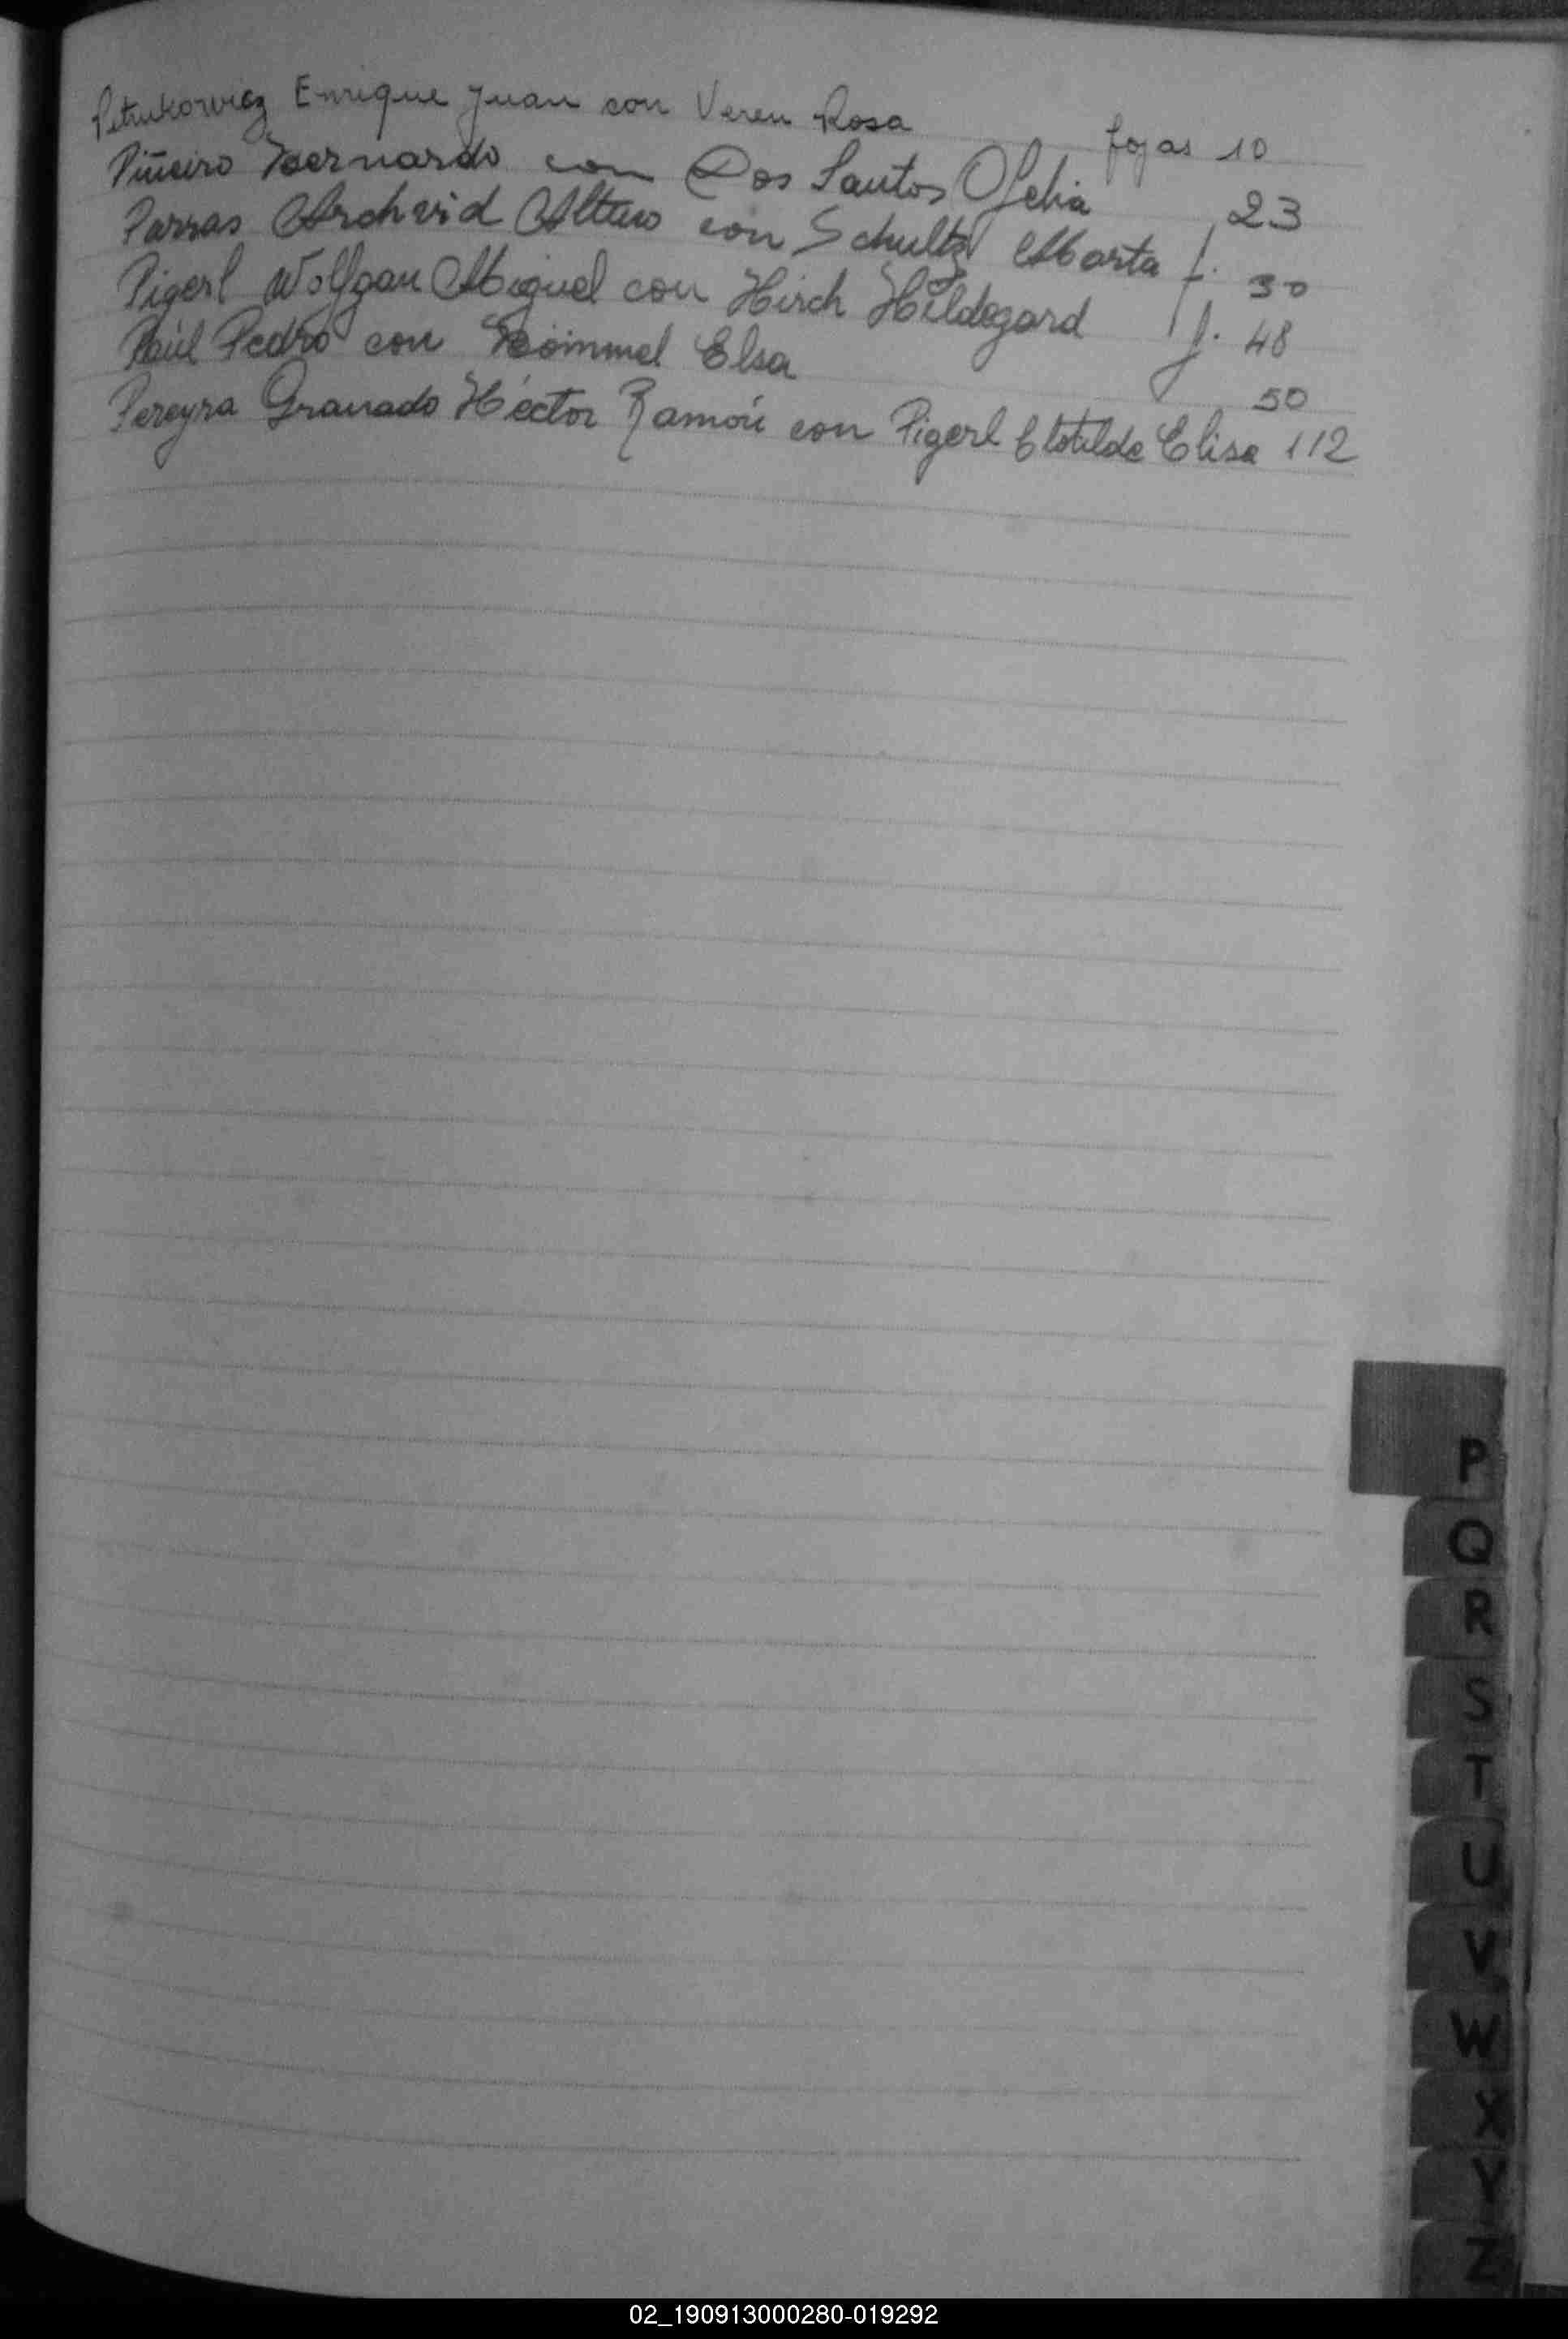 Petrukowicz Enrique Juan con Veren Rosa fojas 10
Piñeiro Bernardo con Dos Santos Ofelia 23
Parras Archivid Altaro con Schultz Marta f. 30
Pigerl Wolfgan Miguel con Hirch Hildegard f. 48
Paul Pedro con Römmel Elsa 50
Pereyra Granado Héctor Ramón con Pigerl Clotilde Elisa 112
P
Q
R
S
T
U
V
W
X
Y
Z
02_190913000280-019292